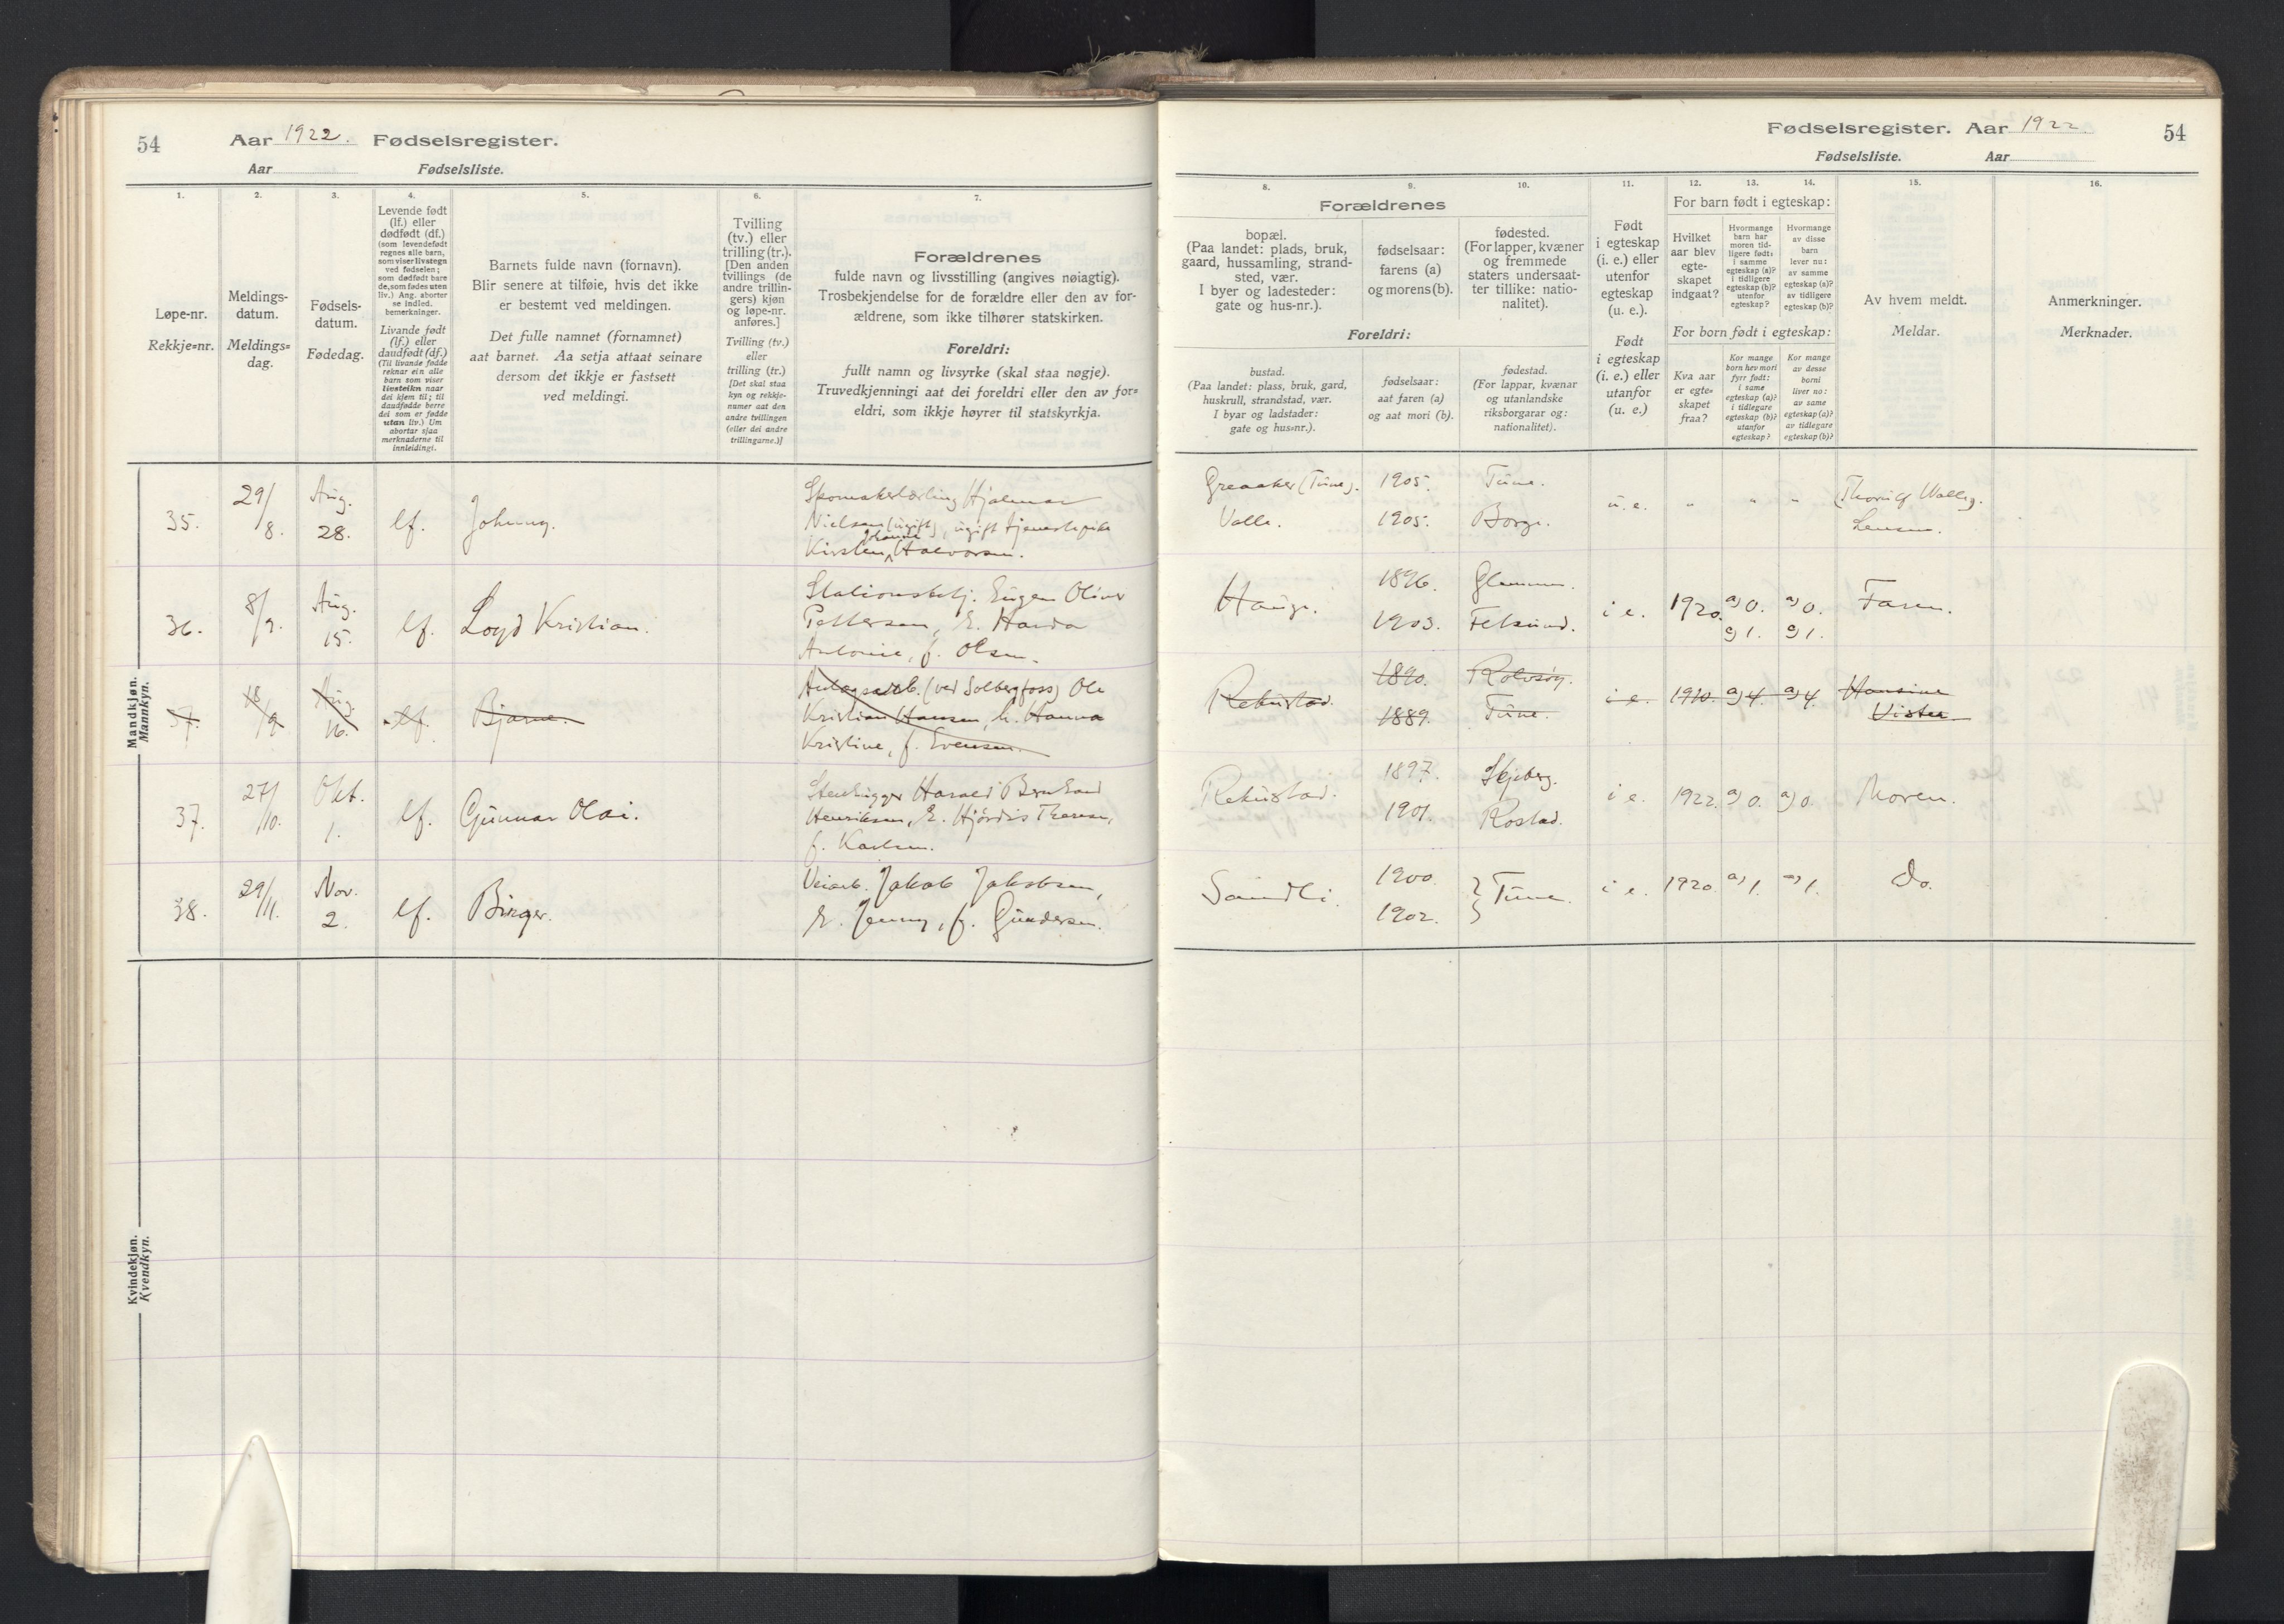 54
Aar 1922. Fødselsregister.
Aar Fødselsliste.
1.
2.
3.
4.
5.
6.
7.
Løpe-nr.
Rekkje=nr.
Meldings-
datum.
Meldings=
dag.
Fødsels-
datum.
Fødedag.
Levende født
(lf.) eller
dødfødt (df.)
(som levendefødt
regnes alle barn,
som viser livstegn
ved fødselen;
som dødfødt bare
de, som fødes uten
liv.) Ang. aborter
se indled.
bemerkninger.
Livande født
(lf.) eller
daudfødt (df.)
(Til livande fødde
reknar ein alle
barn som viser
livsteikn naar
dei kjem til; til
daudfødde berre
dei som er fødde
utan liv.) Um
abortar sjaa
merknaderne til
innleidingi.
Barnets fulde navn (fornavn).
Blir senere at tilføie, hvis det ikke
er bestemt ved meldingen.
Det fulle namnet (fornamnet)
aat barnet. Aa setja attaat seinare
dersom det ikkje er fastsett
ved meldingi.
Tvilling
(tv.) eller
trilling (tr.).
[Den anden
tvillings (de
andre trillin-
gers) kjøn
og løpe-nr.
anføres.]
Tvilling (tv.)
eller
trilling (tr.)
[Det skal staa
kyn og rekkje-
numer aat den
andre tvillingen
(eller dei andre
trillingarne.)]
Forældrenes
fulde navn og livsstilling (angives nøiagtig).
Trosbekjendelse for de forældre eller den av for-
ældrene, som ikke tilhører statskirken.
Foreldri:
fullt namn og livsyrke (skal staa nøgje).
Truvedkjenningi aat dei foreldri eller den av for=
eldri, som ikkje høyrer til statskyrkja.
Mandkjøn.
Mannkyn.
35. 29/8. Aug. 28. lf. Johnny.
Skomakerlærling Hjalmar
Nielsen (ugift), ugift tjenestepike
Johanne
Kirsten Halvorsen.
36. 8/9. Aug. 15. lf. Loyd Kristian.
Stationsbetj. Eugen Oliver
Pettersen, h. Harda
Antonie, f. Olsen.
37. 18/9 Aug. 16. lf. Bjarne.
Anlægsarb. (ved Solbergfoss) Ole
Kristian Hansen, h. Hanna
Kristine, f. Evensen.
37. 27/10. Okt. 1. lf. Gunnar Olai.
Stenhugger Harald Bernhard
Henriksen, h. Hjørdis Therese,
f. Karlsen.
38. 29/11. Nov. 2. lf. Birger.
Veiarb. Jakob Jakobsen,
h. Jenny, f. Gundersen.
Kvindekjøn.
Kvendkyn.
Fødselsregister. Aar 1922.
54
Fødselsliste. Aar
8.
9.
10.
11.
12.
13.
14.
15.
16.
Forældrenes
bopæl.
(Paa landet: plads, bruk,
gaard, hussamling, strand-
sted, vær.
I byer og ladesteder:
gate og hus-nr.).
fødselsaar:
farens (a)
og morens (b).
fødested.
(For lapper, kvæner
og fremmede
staters undersaat-
ter tillike: natio-
nalitet).
Foreldri:
bustad.
(Paa landet: plass, bruk, gard,
huskrull, strandstad, vær.
I byar og ladstader:
gate og hus=nr.).
fødselsaar:
aat faren (a)
og aat mori (b).
fødestad.
(For lappar, kvænar
og utanlandske
riksborgarar og:
nationalitet).
Født
i egteskap
(i. e.) eller
utenfor
egteskap
(u. e.).
Født
i egteskap
(i. e.) eller
utanfor
(u. e.)
For barn født i egteskap:
Hvilket
aar blev
egte-
skapet
indgaat?
Hvormange
barn har
moren tid-
ligere født:
i samme
egteskap (a)?
i tidligere
egteskap (b)?
utenfor
egteskap?
Hvormange
av disse
barn
lever nu:
av samme
egteskap (a)?
av tidligere
egteskap (b)?
For born født i egteskap:
Kva aar
er egte=
skapet
fraa?
Kor mange
born hev mori
fyrr født:
i same
egteskap (a)?
i tidlegare
egteskap (b)?
utanfor
egteskap?
Kor mange
av desse
borni
liver no:
av same
egteskap (a)?
av tidlegare
egteskap (b)?
Av hvem meldt.
Meldar.
Anmerkninger.
Merknader.
Greaaker (Tune). 1905. Tune.
Valle. 1905. Borge.
u. e. " " "
Hauge. 1896. Glemmen.
1903.
i e. 1920. a) 0. a) 0. Faren.
c) 1. c) 1.
Rekustad. 1890. Rolvsøy.
1889. Tune.
i e. 1910. a) 4. a) 4. Hansine
Vister
Rekustad. 1897. Skjeberg.
1901. Rostad.
i e. 1922. a) 0. a) 0. Moren.
Sandli. 1900.
1902. Tune.
i e. 1920. a) 1. a) 1. Do.